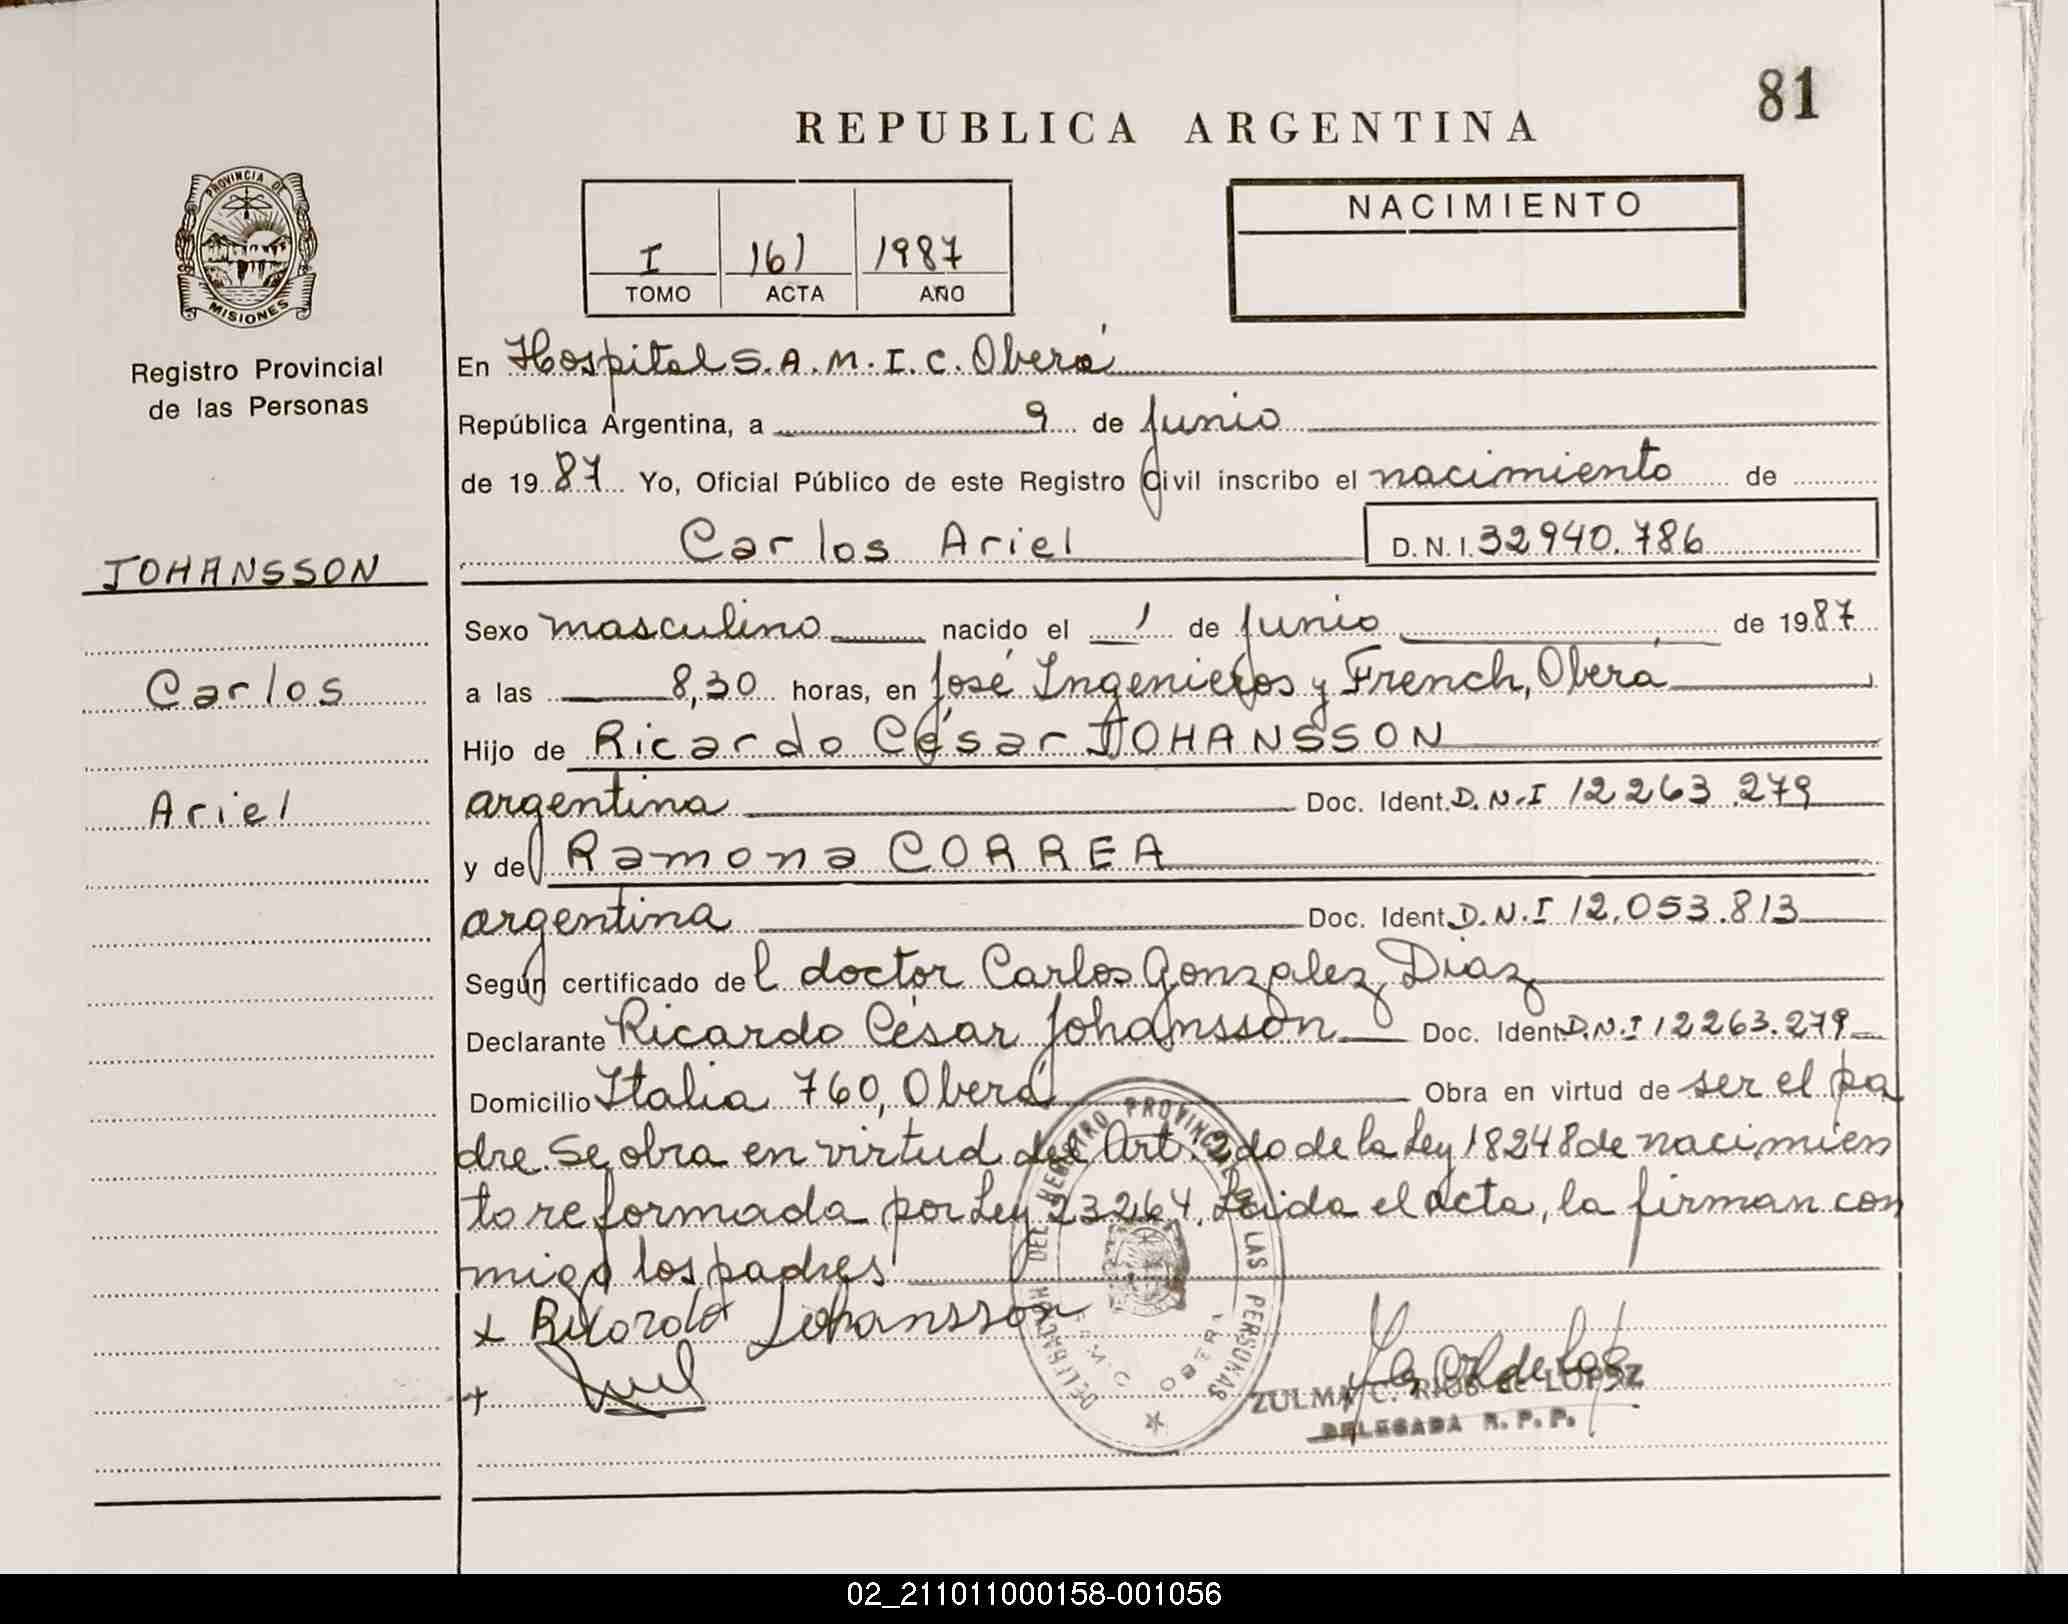 81
REPUBLICA ARGENTINA
PROVINCIA DE
MISIONES
Registro Provincial
de las Personas
I 161 1987
TOMO ACTA AÑO
NACIMIENTO
En Hospital S.A.M.I.C. Oberá
República Argentina, a 9 de Junio
de 1987 Yo, Oficial Público de este Registro Civil inscribo el nacimiento de
Carlos Ariel D.N.I. 32940.786
JOHANSSON
Carlos
Ariel
Sexo masculino nacido el 1 de Junio de 1987
a las 8,30 horas, en José Ingenieros y French, Oberá
Hijo de Ricardo César JOHANSSON
argentina Doc. Ident. D.N.I 12263.279
y de Ramona CORREA
argentina Doc. Ident. D.N.I 12.053.813
Según certificado del doctor Carlos Gonzalez Diaz
Declarante Ricardo César Johansson Doc. Ident. D.N.I 12263.279
Domicilio Italia 760, Oberá Obra en virtud de ser el pa
dre. Se obra en virtud del Art. 2do de la Ley 18248 de nacimien
to reformada por Ley 23264. Leida el acta, la firman con
migo los padres
x Ricardo Johansson
+
DELEGACION DEL REGISTRO PROVINCIAL DE LAS PERSONAS
OBERA
ZULMA C. RIOS de LOPEZ
DELEGADA R.P.P.
02_211011000158-001056